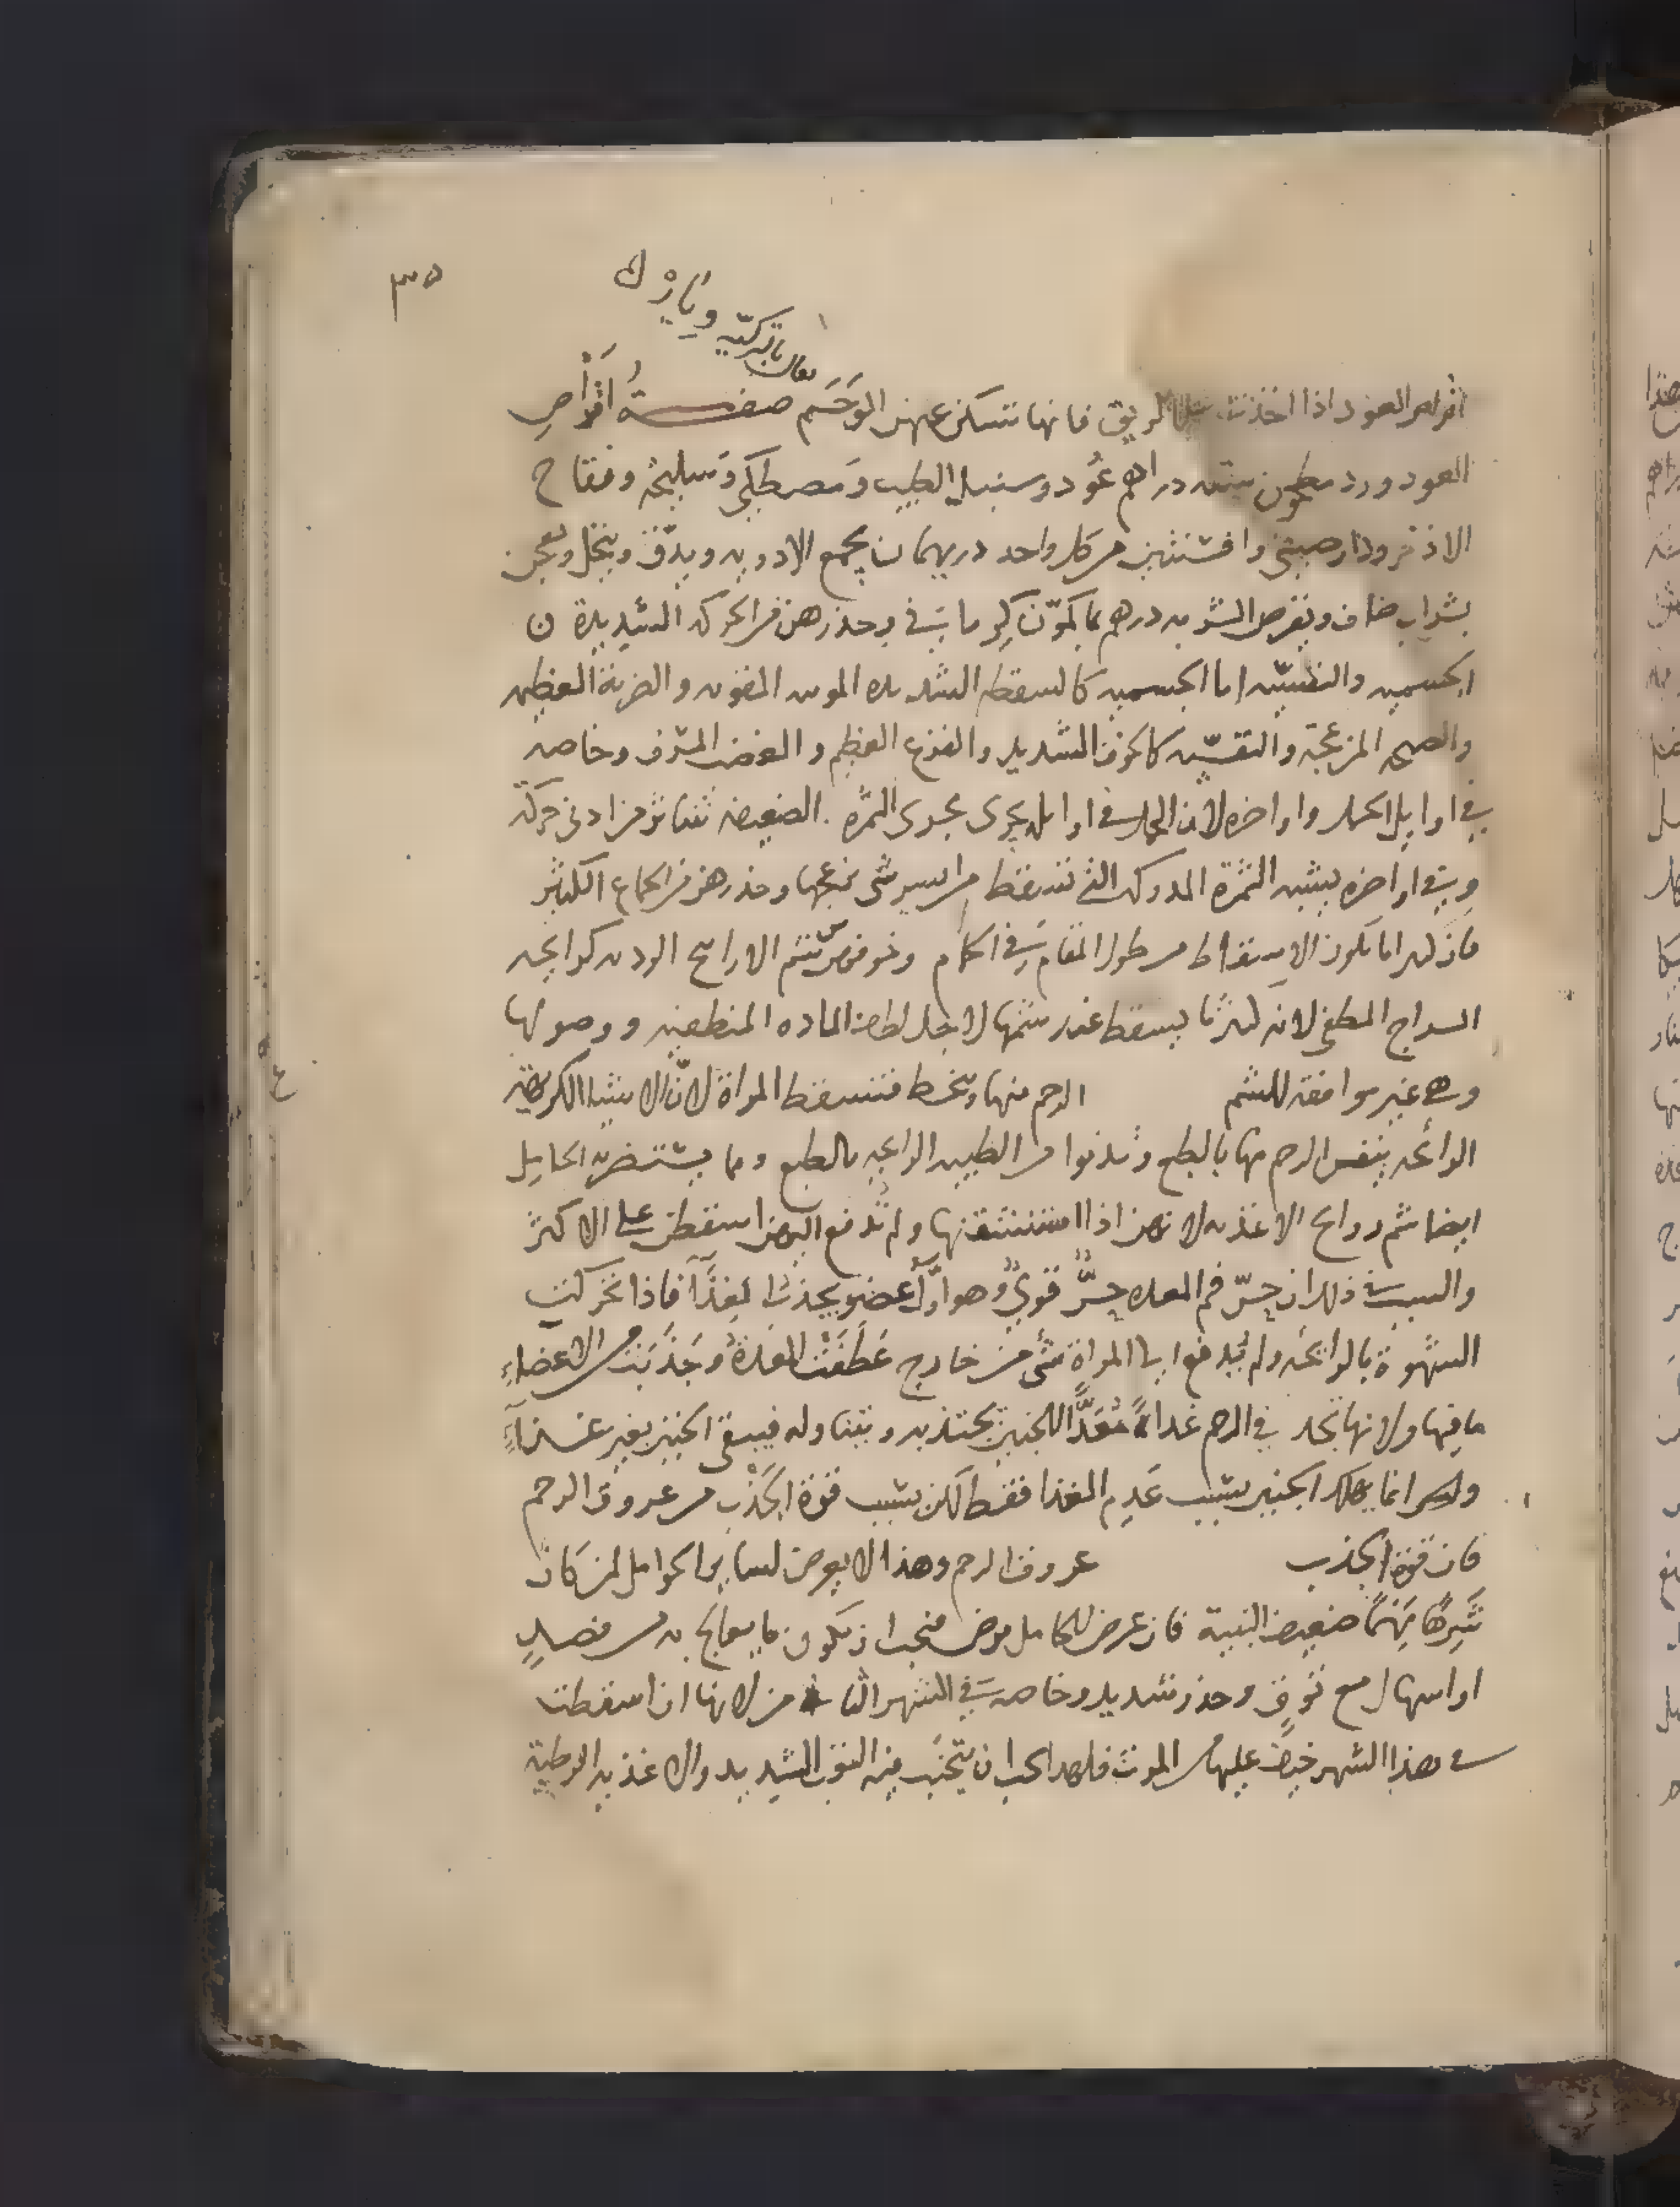 ٣٥
يقال بالتركية ويارك
اقراص العود اذا اخذت على الريق فانها تسكن عنهن الوَحَم صفـــة اقراصِ
العود ورد مطحون ستة دراهم عُود وسنبل الطيب ومصطكى وسليخه وفقاح
الاذخر ودارصينى وافسنتين من كل واحد درهمان يجمع الادويه ويدقّ وينخل ويعجن
بشراب صاف ويقرص الشربه درهم بماء كمّون كرمانى وحذرهن من الحركه الشديدة
الجسميه والنفسيّه اما الجسميه كالسقطه الشديده القويه والضربة العظيمه
والصيحه المزعجة والنفسيّه كالخوف الشديد والفزع العظيم والغضب المشرف وخاصه
فى اوايل الحمل واواخره لان الحمل فى اوايله يجرى مجرى الثمرة الضعيفه تتناثر من ادنى حركة
وفى اواخره يشبه الثمرة المدركه التى تسقط من ايسر شى يزعجها وحذرهن من الجماع الكثير
فان كثيرا ما يكون الاسقاط من طول المقام فى الحمام وخوفهن شم الاراييح الرديه كرايحه
السراج المطفى لانه كثيرًا يسقط عند شمها لاجل لطافة الماده المنطفيه ووصولها
وهى غير موافقه للشم الرحم منها ويسخط فتسقط المراة لانّ الاشيا الكريهة
الرائحه ينفر الرحم منها بالطبع وتدنوا من الطيبه الرايحه بالطبع ومما يستضر به الحامِل
ايضا شم روايح الاغذيه لانهن اذا استنشقنها ولم تُدفع اليهن اسقطن على الاكثر
والسبب فى ذلك ان حسّ فم المعده حسٌّ قوىٌّ وهو اوّل عضو يجذب الغذآ فاذا تحركت
الشهوة بالرائحه ولم يُدفع الى المراة شىء من خارج عَطَفَت المعدةُ وجَذَبَت من الاعضاءِ
ما فيها ولانها تجد فى الرحم غداءً مُعَدًّا للجنين تجتذبه وتتناوله فيبقى الجنين بغير غــذآءٍ
وليس انما يهلك الجنين بسبب عَدِم الغذا فقط لكن بسبب قوّة الجَذْب من عروق الرحم
فان قوة الجذب عروق الرحم وهذا لا يعرض لساير الحوامل لمن كان
شَرِهًا نَهِمًا ضعيف البنية فان عرض للحامل مرض فيجب ان يكون ما يعالج به من فصدٍ
او اسهال مع توقٍ وحذر شديد وخاصه فى الشهر الثامن لانها ان اسقطت
فى هذا الشهر خيف عليها من الموت فلهذا يجب ان يتجنّب فيه التعب الشديد والاغذيه الرطبة